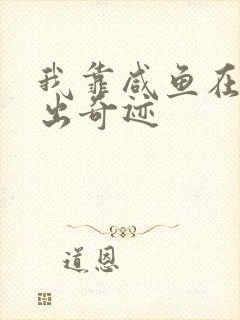 我靠咸鱼在
出奇迹
道恩